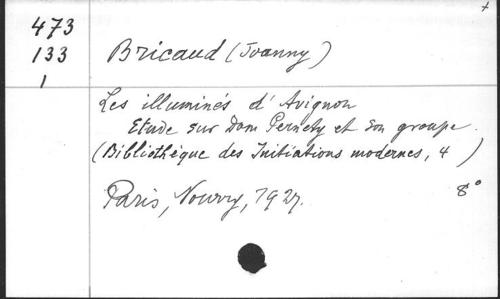 473
133
1
+
Bricaud (Joanny)
Les illuminés d'Avignon
Etude sur Dom Pernety et son groupe.
(Bibliothèque des Initiations modernes, 4)
Paris, Nourry, 1927. 8°